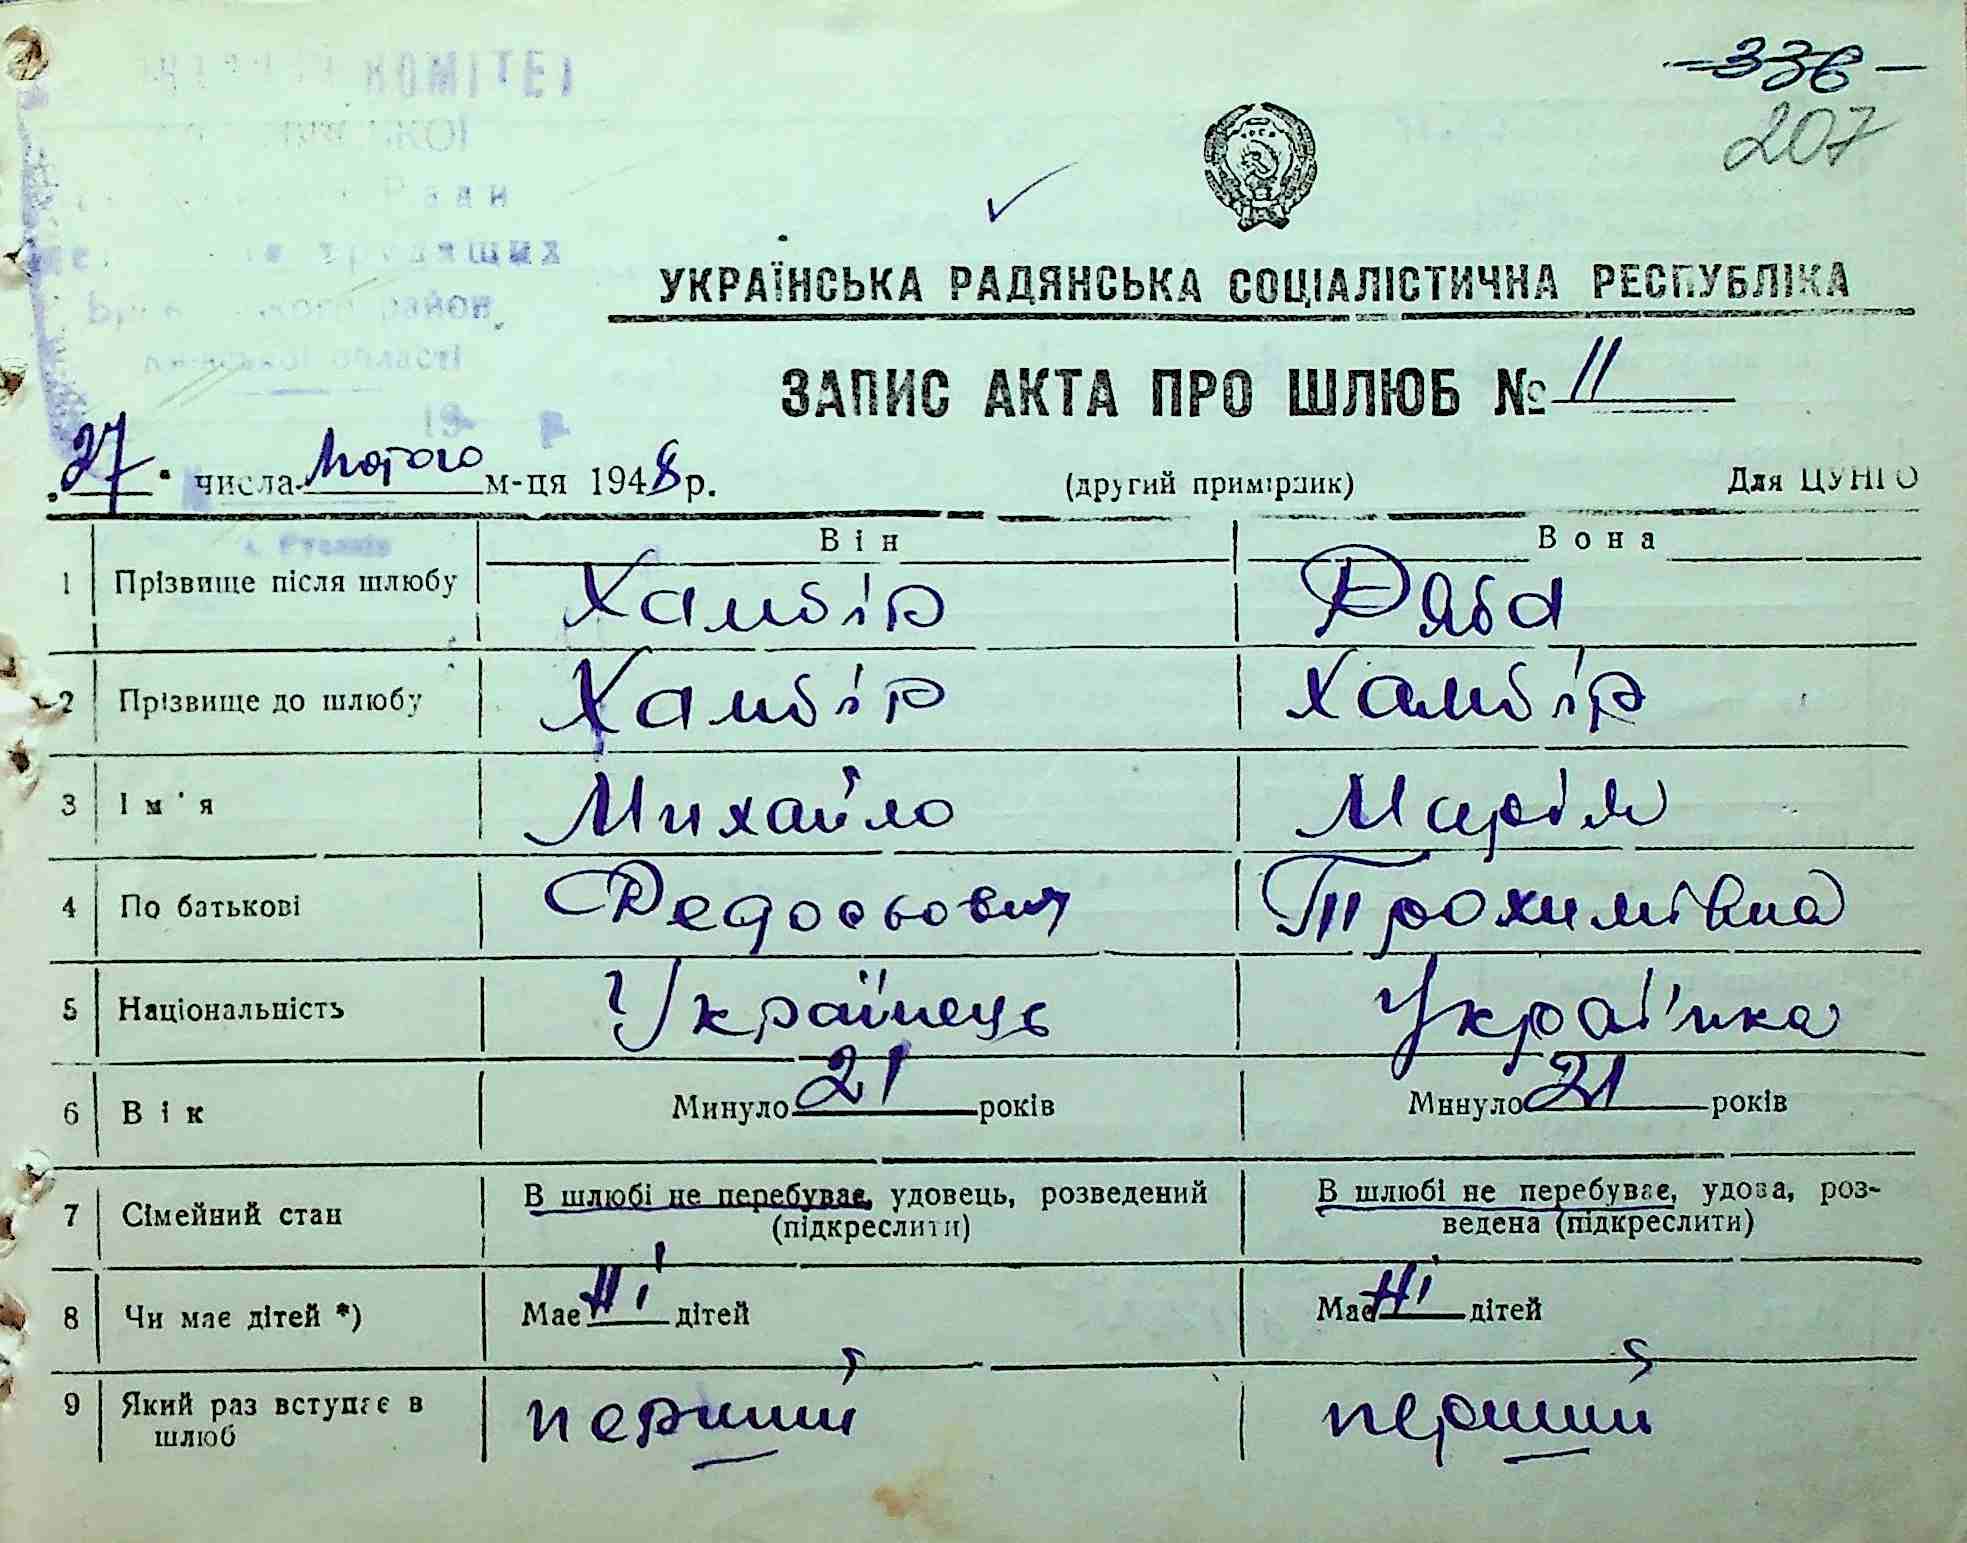 КОМІТЕТ
336
207
УКРАЇНСЬКА РАДЯНСЬКА СОЦІАЛІСТИЧНА РЕСПУБЛІКА
ЗАПИС АКТА ПРО ШЛЮБ № 11
"27" числа Лютого м-ця 1948 р. (другий примірник) Для ЦУНГО
Він Вона
1 Прізвище після шлюбу Хамбір Ряба
2 Прізвище до шлюбу Хамбір Хамбір
3 Ім'я Михайло Марія
4 По батькові Федосьович Трохимівна
5 Національність Українець Украінка
6 Вік Минуло 21 років Минуло 21 років
7 Сімейний стан В шлюбі не перебуває, удовець, розведений (підкреслити) В шлюбі не перебуває, удова, роз-
ведена (підкреслити)
8 Чи має дітей *) Має Ні дітей Має Ні дітей
9 Який раз вступає в шлюб перший перший